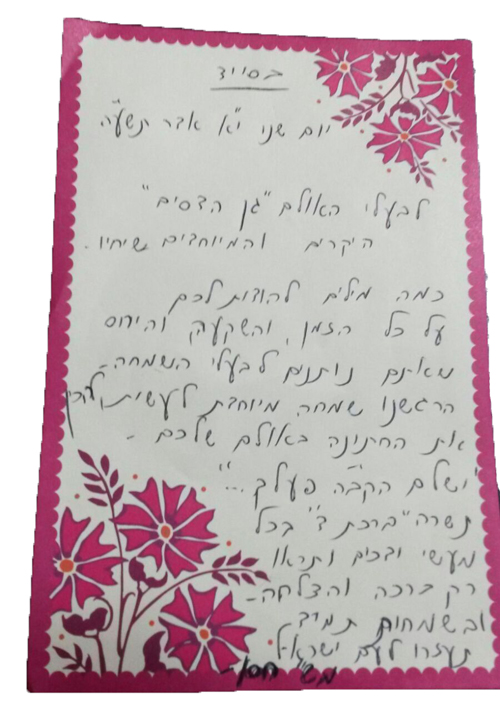 בסייד
יום שני י"א אדר תשע"ה
לבעלי האולם "גן הדסים"
היקרים והמיוחדים שיחיו.
כמה מילים להודות לכם
על כל הזמן, והשקעה והיחס
שאתם נותנים לבעלי השמחה-
הרגשנו שמחה מיוחדת לעשות
את החתונה באולם שלכם -
"ישלם הקב"ה פעלך..."
תשרה "ברכת ד'" בכל
מעשי ידכים ותראו
רק ברכה והצלחה-
ובשמחות תמיד
תעזרו לעם ישראל